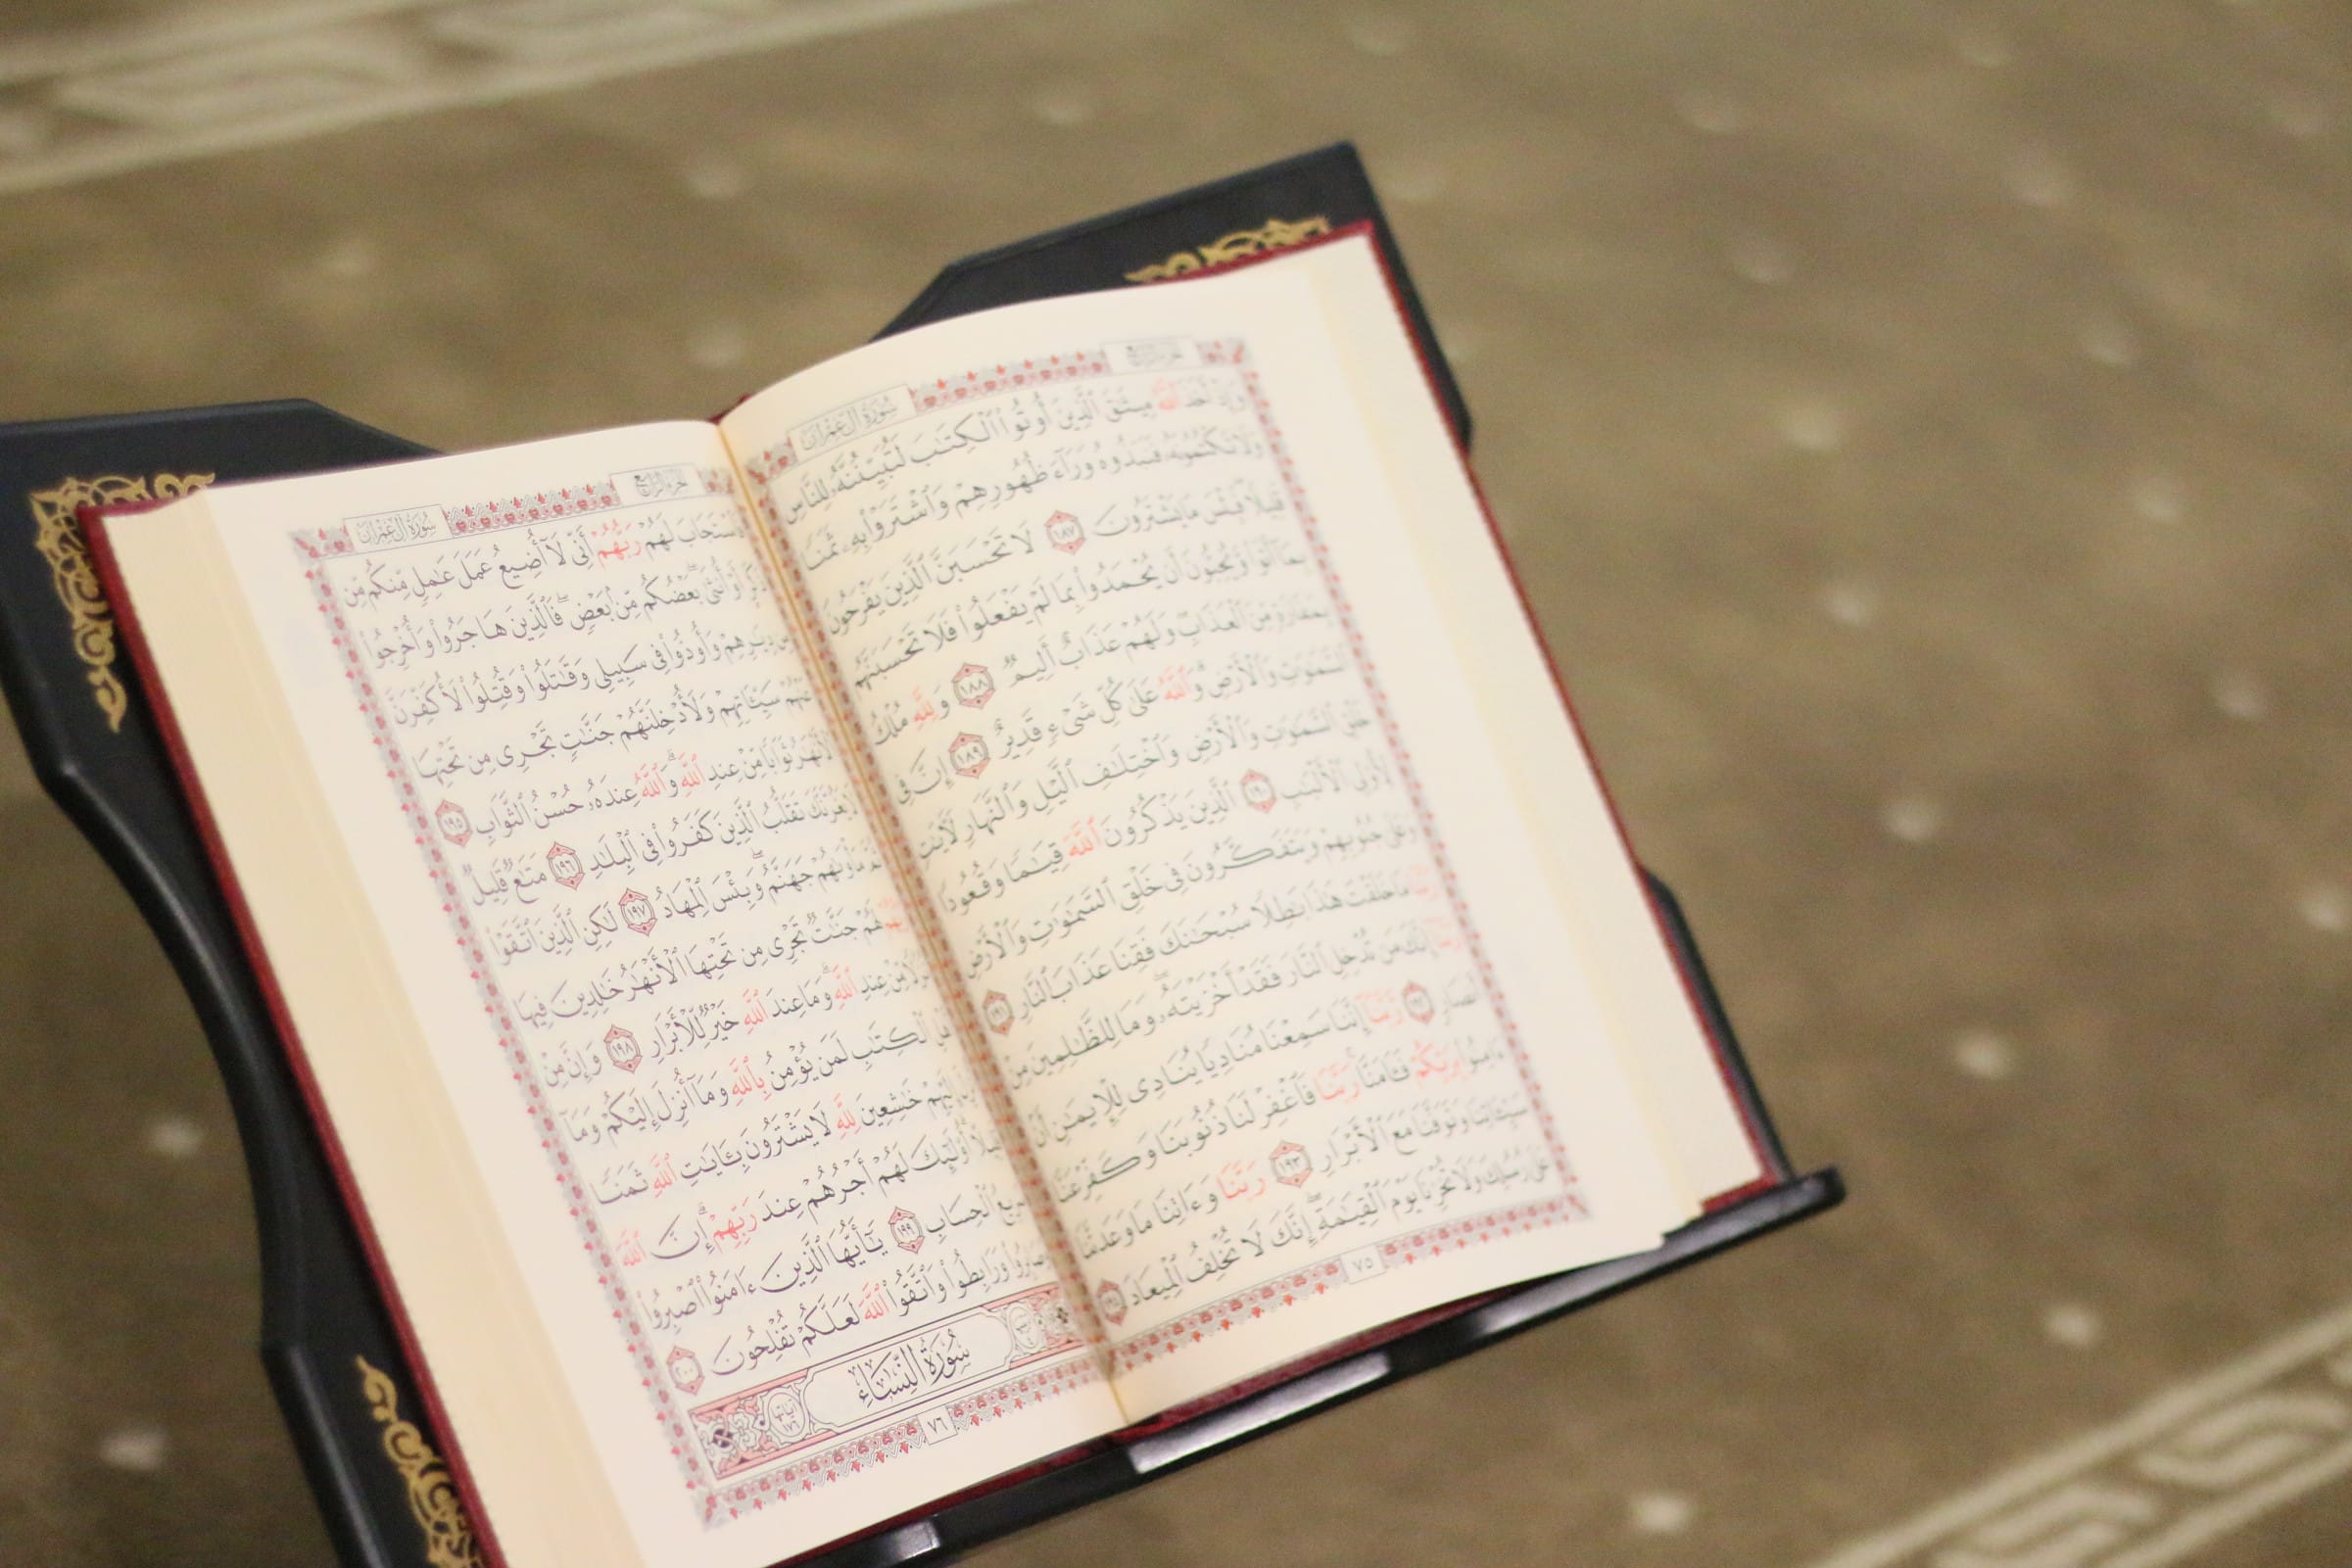 سُورَةُ آلِ عِمۡرَانَ
وَإِذۡ أَخَذَ ٱللَّهُ مِيثَٰقَ ٱلَّذِينَ أُوتُواْ ٱلۡكِتَٰبَ لَتُبَيِّنُنَّهُۥ لِلنَّاسِ
وَلَا تَكۡتُمُونَهُۥ فَنَبَذُوهُ وَرَآءَ ظُهُورِهِمۡ وَٱشۡتَرَوۡاْ بِهِۦ ثَمَنٗا
قَلِيلٗاۖ فَبِئۡسَ مَا يَشۡتَرُونَ ١٨٧ لَا تَحۡسَبَنَّ ٱلَّذِينَ يَفۡرَحُونَ
بِمَآ أَتَواْ وَّيُحِبُّونَ أَن يُحۡمَدُواْ بِمَا لَمۡ يَفۡعَلُواْ فَلَا تَحۡسَبَنَّهُم
بِمَفَازَةٖ مِّنَ ٱلۡعَذَابِۖ وَلَهُمۡ عَذَابٌ أَلِيمٞ ١٨٨ وَلِلَّهِ مُلۡكُ
ٱلسَّمَٰوَٰتِ وَٱلۡأَرۡضِۗ وَٱللَّهُ عَلَىٰ كُلِّ شَيۡءٖ قَدِيرٌ ١٨٩ إِنَّ فِي
خَلۡقِ ٱلسَّمَٰوَٰتِ وَٱلۡأَرۡضِ وَٱخۡتِلَٰفِ ٱلَّيۡلِ وَٱلنَّهَارِ لَأٓيَٰتٖ
لِّأُوْلِي ٱلۡأَلۡبَٰبِ ١٩٠ ٱلَّذِينَ يَذۡكُرُونَ ٱللَّهَ قِيَٰمٗا وَقُعُودٗا
وَعَلَىٰ جُنُوبِهِمۡ وَيَتَفَكَّرُونَ فِي خَلۡقِ ٱلسَّمَٰوَٰتِ وَٱلۡأَرۡضِ
رَبَّنَا مَا خَلَقۡتَ هَٰذَا بَٰطِلٗا سُبۡحَٰنَكَ فَقِنَا عَذَابَ ٱلنَّارِ ١٩١
رَبَّنَآ إِنَّكَ مَن تُدۡخِلِ ٱلنَّارَ فَقَدۡ أَخۡزَيۡتَهُۥۖ وَمَا لِلظَّٰلِمِينَ مِنۡ
أَنصَارٖ ١٩٢ رَّبَّنَآ إِنَّنَا سَمِعۡنَا مُنَادِيٗا يُنَادِي لِلۡإِيمَٰنِ أَنۡ
ءَامِنُواْ بِرَبِّكُمۡ فَـَٔامَنَّاۚ رَبَّنَا فَٱغۡفِرۡ لَنَا ذُنُوبَنَا وَكَفِّرۡ عَنَّا
سَيِّـَٔاتِنَا وَتَوَفَّنَا مَعَ ٱلۡأَبۡرَارِ ١٩٣ رَبَّنَا وَءَاتِنَا مَا وَعَدتَّنَا
عَلَىٰ رُسُلِكَ وَلَا تُخۡزِنَا يَوۡمَ ٱلۡقِيَٰمَةِۖ إِنَّكَ لَا تُخۡلِفُ ٱلۡمِيعَادَ ١٩٤
٧٥
الجُزْءُ الرَّابِعُ
سُورَةُ آلِ عِمۡرَانَ
فَٱسۡتَجَابَ لَهُمۡ رَبُّهُمۡ أَنِّي لَآ أُضِيعُ عَمَلَ عَٰمِلٖ مِّنكُم مِّن
ذَكَرٍ أَوۡ أُنثَىٰۖ بَعۡضُكُم مِّنۢ بَعۡضٖۖ فَٱلَّذِينَ هَاجَرُواْ وَأُخۡرِجُواْ
مِن دِيَٰرِهِمۡ وَأُوذُواْ فِي سَبِيلِي وَقَٰتَلُواْ وَقُتِلُواْ لَأُكَفِّرَنَّ
عَنۡهُمۡ سَيِّـَٔاتِهِمۡ وَلَأُدۡخِلَنَّهُمۡ جَنَّٰتٖ تَجۡرِي مِن تَحۡتِهَا
ٱلۡأَنۡهَٰرُ ثَوَابٗا مِّنۡ عِندِ ٱللَّهِۗ وَٱللَّهُ عِندَهُۥ حُسۡنُ ٱلثَّوَابِ ١٩٥
لَا يَغُرَّنَّكَ تَقَلُّبُ ٱلَّذِينَ كَفَرُواْ فِي ٱلۡبِلَٰدِ ١٩٦ مَتَٰعٞ قَلِيلٞ
ثُمَّ مَأۡوَىٰهُمۡ جَهَنَّمُۖ وَبِئۡسَ ٱلۡمِهَادُ ١٩٧ لَٰكِنِ ٱلَّذِينَ ٱتَّقَوۡاْ
رَبَّهُمۡ لَهُمۡ جَنَّٰتٞ تَجۡرِي مِن تَحۡتِهَا ٱلۡأَنۡهَٰرُ خَٰلِدِينَ فِيهَا
نُزُلٗا مِّنۡ عِندِ ٱللَّهِۗ وَمَا عِندَ ٱللَّهِ خَيۡرٞ لِّلۡأَبۡرَارِ ١٩٨ وَإِنَّ مِنۡ
أَهۡلِ ٱلۡكِتَٰبِ لَمَن يُؤۡمِنُ بِٱللَّهِ وَمَآ أُنزِلَ إِلَيۡكُمۡ وَمَآ
أُنزِلَ إِلَيۡهِمۡ خَٰشِعِينَ لِلَّهِ لَا يَشۡتَرُونَ بِـَٔايَٰتِ ٱللَّهِ ثَمَنٗا
قَلِيلًاۚ أُوْلَٰٓئِكَ لَهُمۡ أَجۡرُهُمۡ عِندَ رَبِّهِمۡۗ إِنَّ ٱللَّهَ
سَرِيعُ ٱلۡحِسَابِ ١٩٩ يَٰٓأَيُّهَا ٱلَّذِينَ ءَامَنُواْ ٱصۡبِرُواْ
وَصَابِرُواْ وَرَابِطُواْ وَٱتَّقُواْ ٱللَّهَ لَعَلَّكُمۡ تُفۡلِحُونَ ٢٠٠
سُورَةُ النِّسَاءِ
٧٦